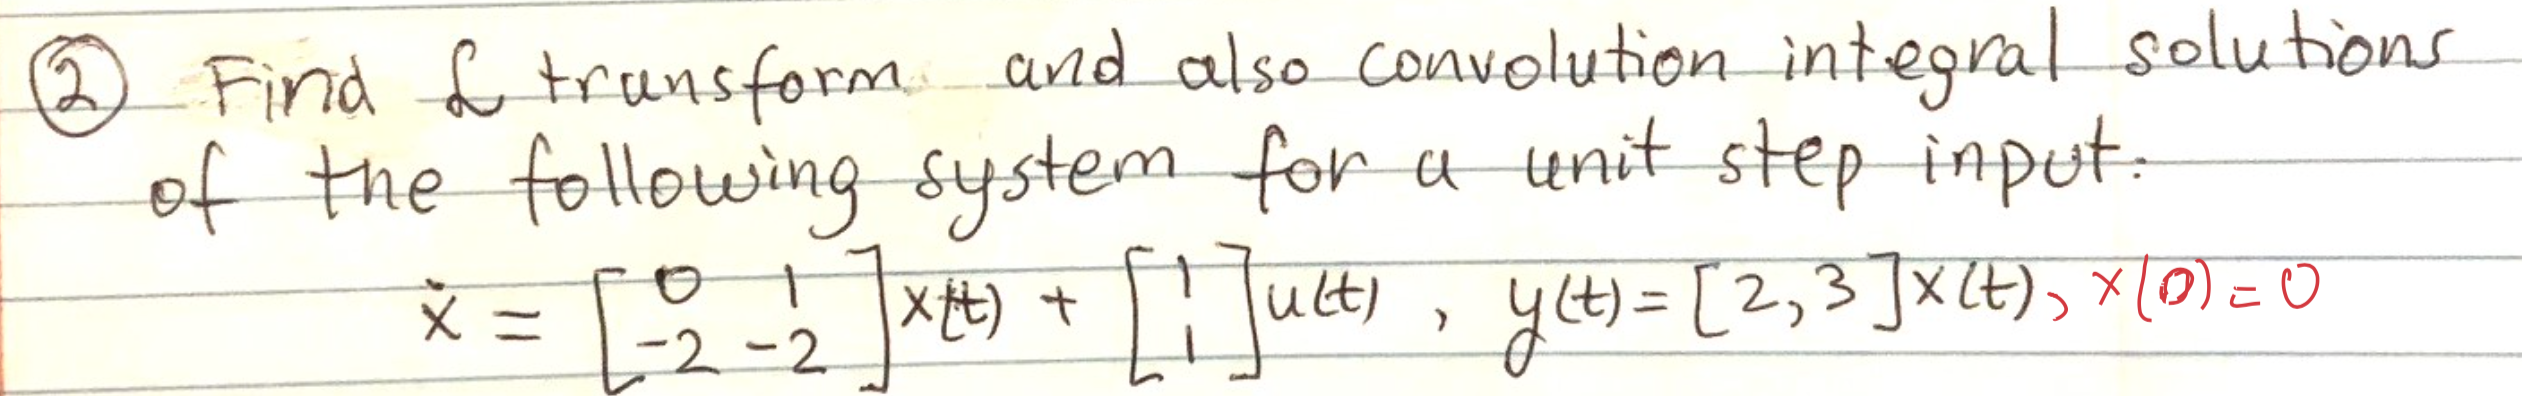 ② Find £ transform and also convolution integral solutions
of the following system for a unit step input.
ẋ = [0 1; -2 -2] x(t) + [1; 1] u(t), y(t) = [2, 3] x(t), x(0) = 0